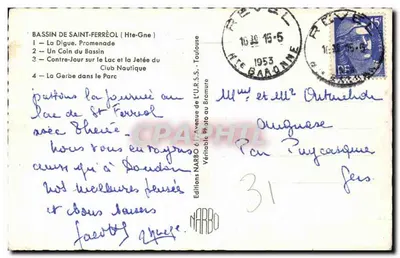 BASSIN DE SAINT-FERRÉOL (Hte-Gne)
1 — La Digue. Promenade
2 — Un Coin du Bassin
3 — Contre-Jour sur le Lac et la Jetée du
Club Nautique
4 — La Gerbe dans le Parc
la journée au
lac de St Ferréol
avec
Nous vous envoyons
ainsi qu'à
nos meilleures pensées
et bons baisers
Editions NARBO 6, Avenue de l'U.R.S.S. - Toulouse
Véritable Photo au Bromure
NARBO
REVEL
16 H 15-5
1953
Hte GARONNE
REVEL
15F
Mme et Mr
Par Puycasquier
Gers
31
CARTE-PRECIEUSE